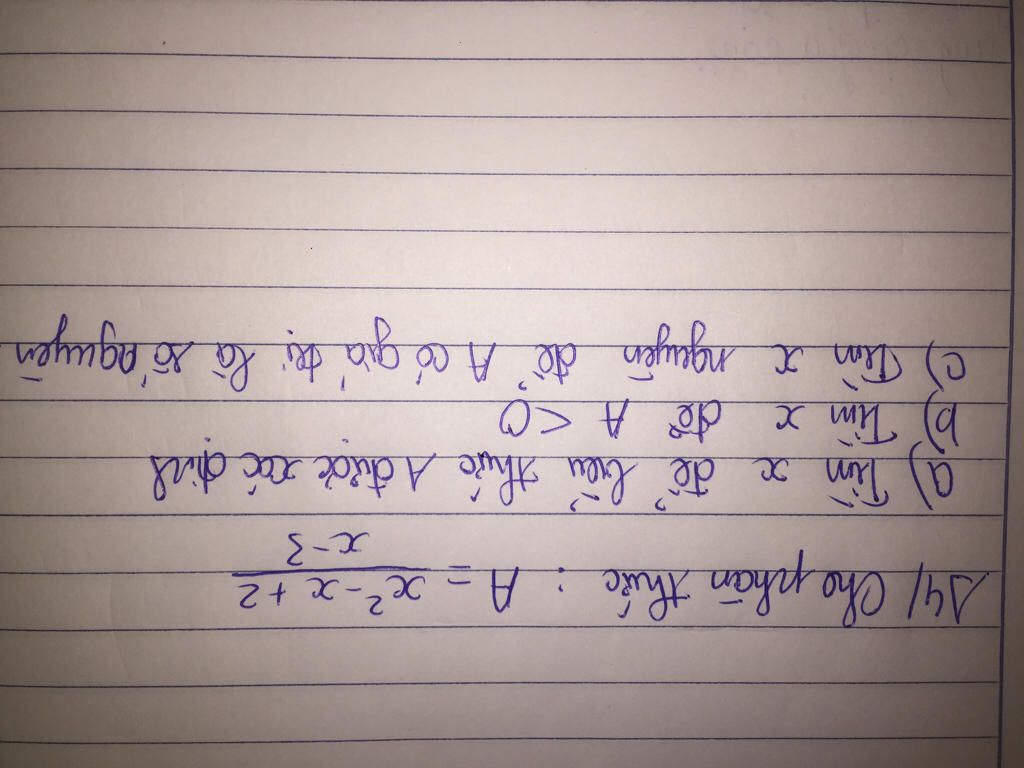 14/ Cho phân thức : A = \frac{x^2-x+2}{x-3}
a) Tìm x để biểu thức A được xác định
b) Tìm x để A < 0
c) Tìm x nguyên để A có giá trị là số nguyên